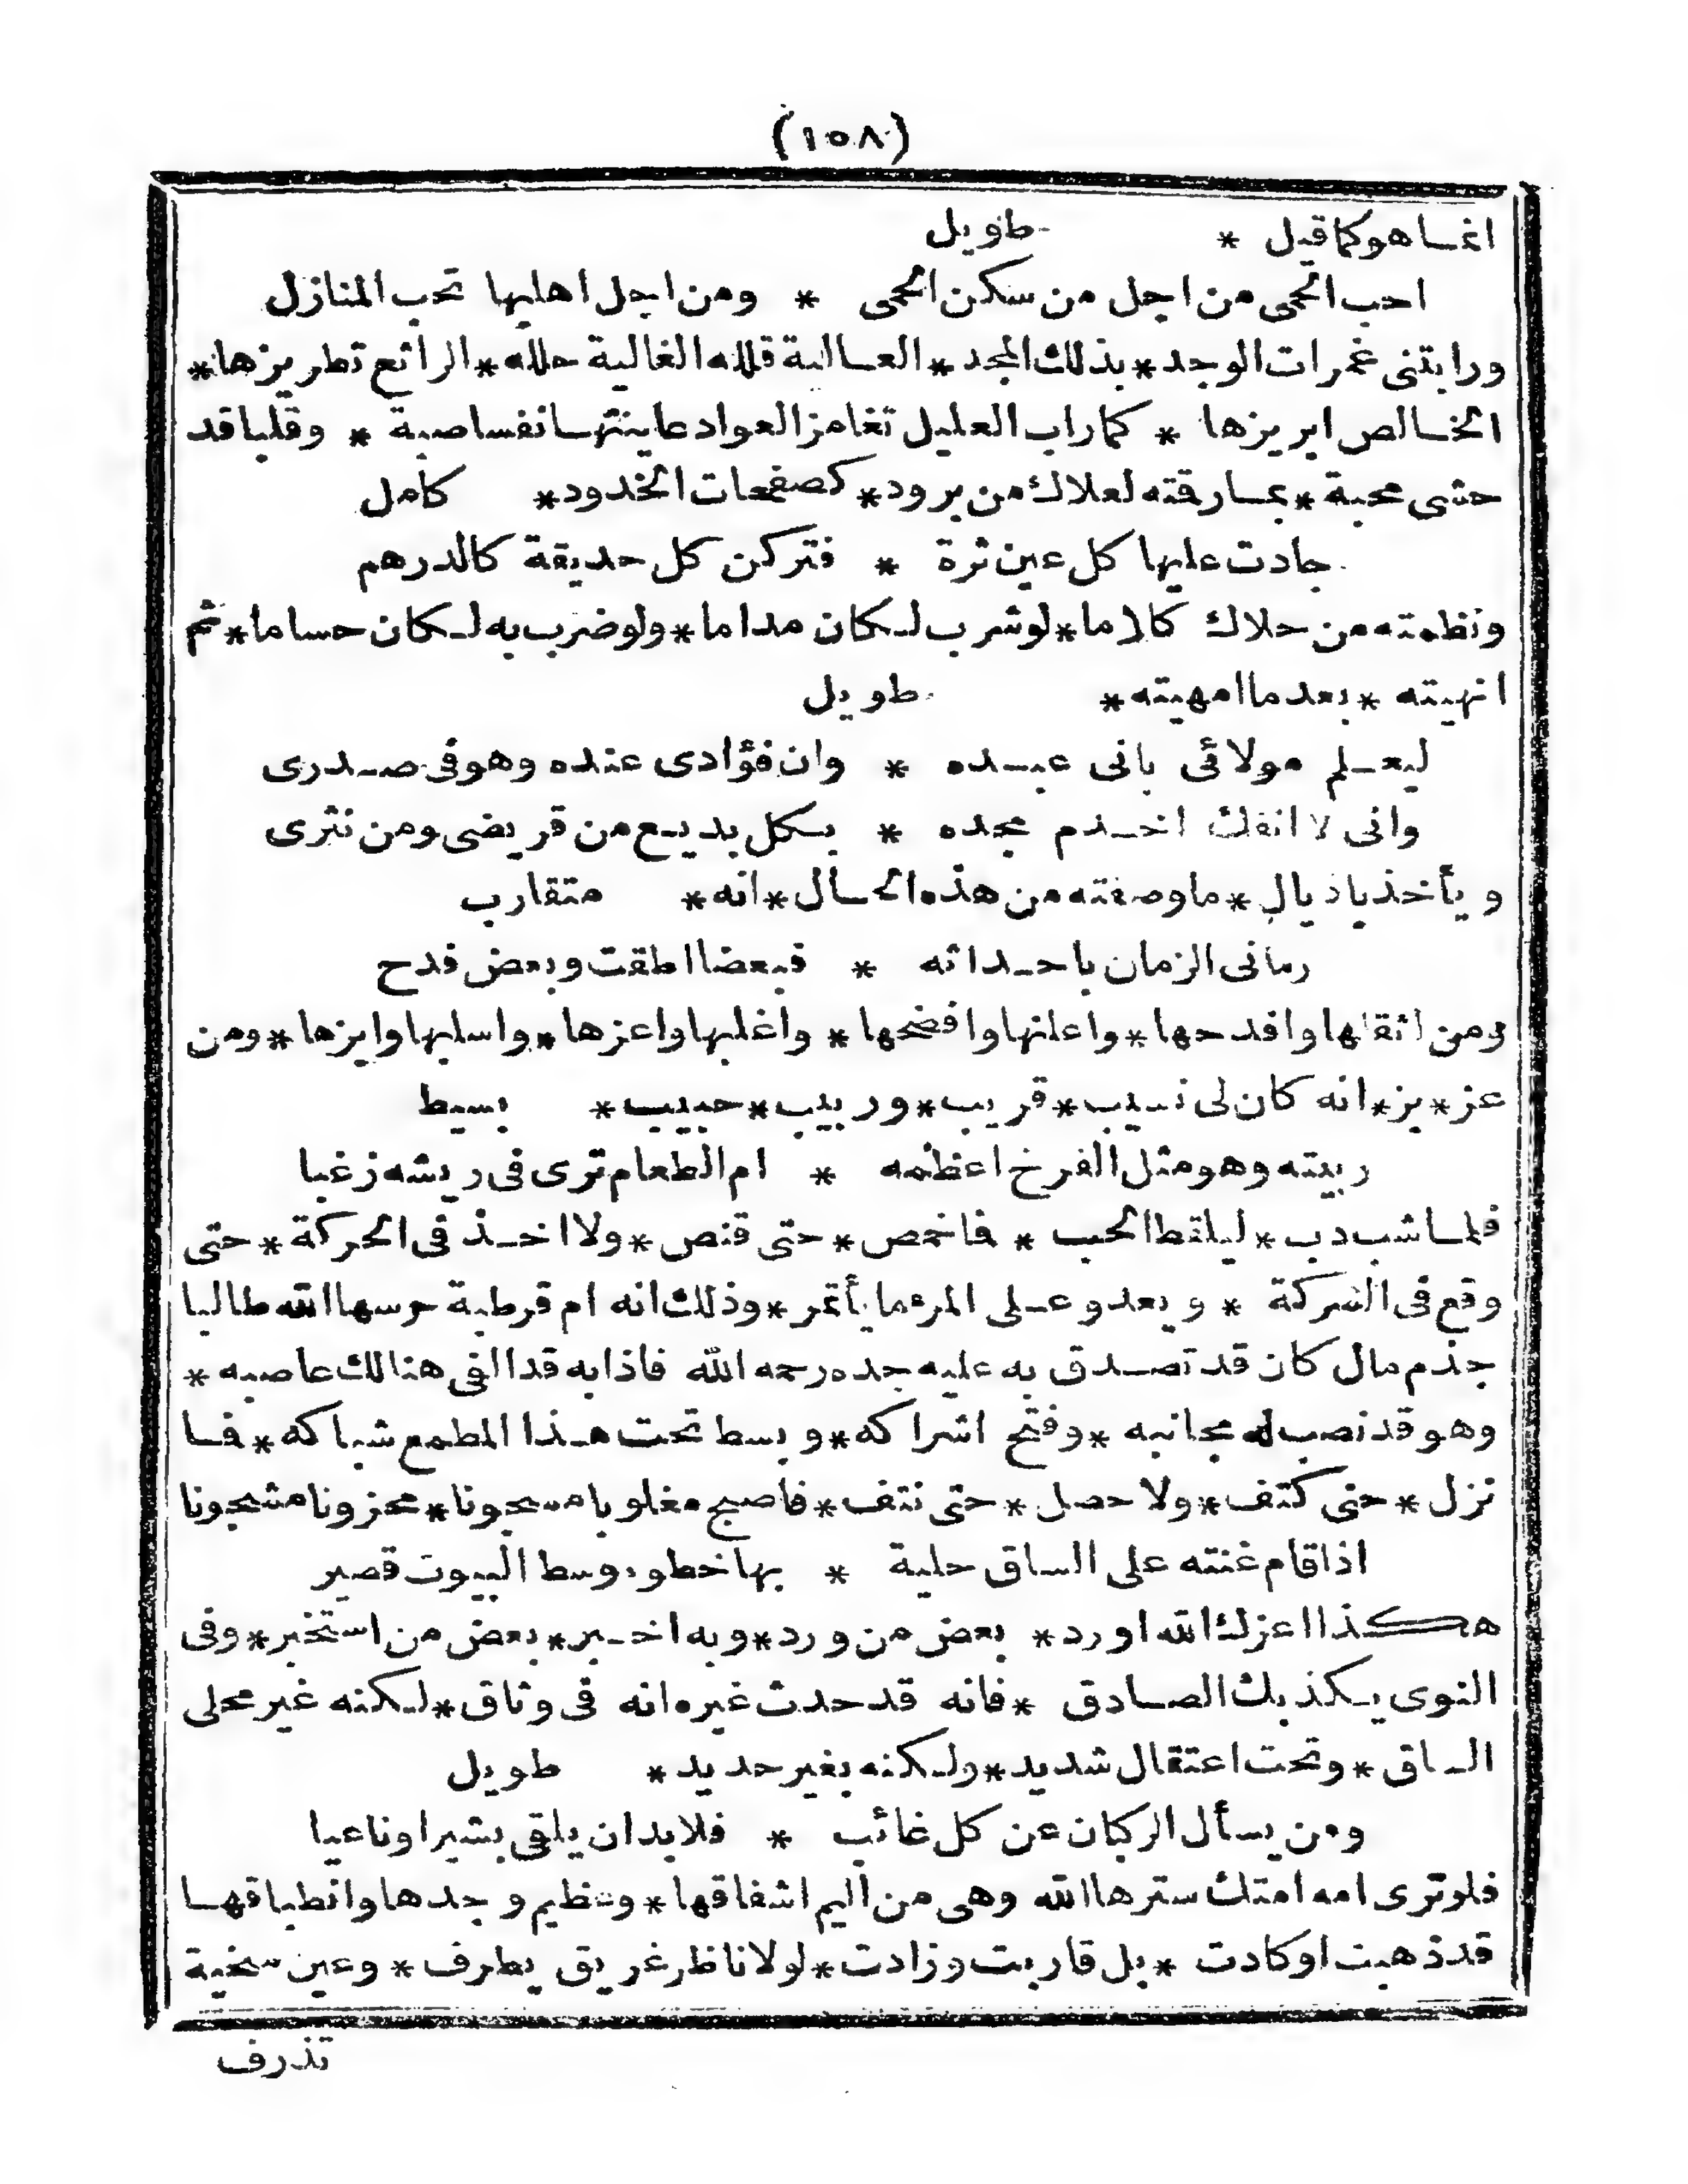 (١٥٨)
انما هو كما قيل * طويل
احب الحمى من اجل من سكن الحمى * ومن اجل اهليها تحب المنازل
ورابتنى غمرات الوجد * بذلك المجد * العالية قلله الغالية حلله * الرائع تطريزها *
الخالص ابريزها * كما راب العليل تغامز العواد عاينتها نفسا صبة * وقلبا قد
حشى محبة * بما رقته لعلاك من برود * كصفحات الخدود * كامل
جادت عليها كل عين ثرة * فتركن كل حديقة كالدرهم
ونظمته من حلاك كلاما * لو شرب لكان مداما * ولو ضرب به لكان حساما * ثم
انهيته * بعد ما امهيته * طويل
ليعلم مولائى بانى عبده * وان فؤادى عنده وهو فى صدرى
وانى لا انفك اخدم مجده * بكل بديع من قريضى ومن نثرى
ويأخذ باذيال * ما وصفته من هذه الحال * انه * متقارب
رمانى الزمان باحداثه * فبعضا اطقت وبعض فدح
ومن اثقلها وافدحها * واعلنها وافضحها * واغلبها واعزها * واسلبها وابزها * ومن
عز * بز * انه كان لى نسيب * قريب * وربيب * حبيب * بسيط
ربيته وهو مثل الفرخ اعظمه * ام الطعام ترى فى ريشه زغبا
فلما شب دب * ليلقط الحب * فا نحمص * حتى قنص * ولا اخذ فى الحركة * حتى
وقع فى الشركة * ويعدو على المرء ما يأتمر * وذلك انه ام قرطبة حرسها الله طالبا
جذم مال كان قد تصدق به عليه جده رحمه الله فاذا به قد الفى هنالك عاصبه *
وهو قد نصب له مجانبه * وفتح اشراكه * وبسط تحت هذا المطمع شباكه * فما
نزل * حتى كتف * ولا حصل * حتى نتف * فاصبح مغلوبا مسجونا * محزونا مشجونا
اذا قام غنته على الساق حلية * بها خطوه وسط البيوت قصير
هكذا اعزك الله اورد * بعض من ورد * وبه اخبر * بعض من استخبر * وفى
النوى يكذبك الصادق * فانه قد حدث غيره انه فى وثاق * لكنه غير محلى
الساق * وتحت اعتقال شديد * ولكنه بغير حديد * طويل
ومن يسأل الركبان عن كل غائب * فلا بد ان يلقى بشيرا وناعيا
فلو ترى امه امتك سترها الله وهى من اليم اشفاقها * وعظيم وجدها وانطباقها
قد ذهبت او كادت * بل قاربت وزادت * لولا ناظر غريق يطرف * وعين سخية
تذرف